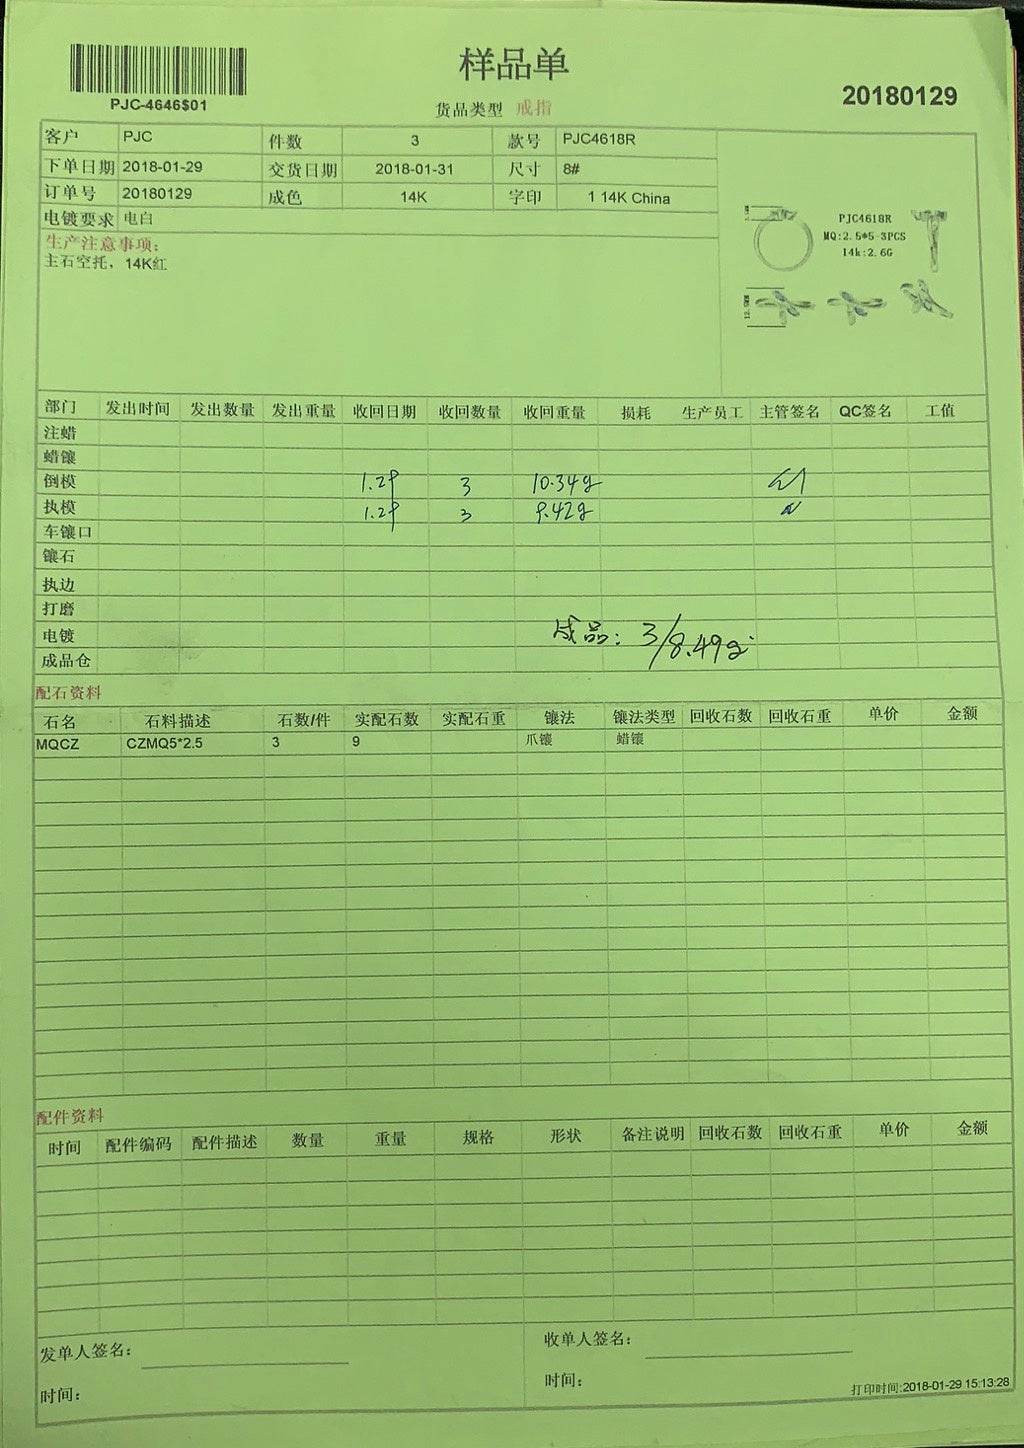 样品单
PJC-4646$01
货品类型 戒指
20180129
客户 PJC 件数 3 款号 PJC4618R
下单日期 2018-01-29 交货日期 2018-01-31 尺寸 8#
订单号 20180129 成色 14K 字印 1 14K China
电镀要求 电白
生产注意事项:
主石空托, 14K红
PJC4618R
MQ:2.5*5-3PCS
14k:2.6G
部门 发出时间 发出数量 发出重量 收回日期 收回数量 收回重量 损耗 生产员工 主管签名 QC签名 工值
注蜡
蜡镶
倒模 1.29 3 10.34g
执模 1.29 3 9.42g
车镶口
镶石
执边
打磨
电镀
成品: 3/8.49g
成品仓
配石资料
石名 石料描述 石数/件 实配石数 实配石重 镶法 镶法类型 回收石数 回收石重 单价 金额
MQCZ CZMQ5*2.5 3 9 爪镶 蜡镶
配件资料
时间 配件编码 配件描述 数量 重量 规格 形状 备注说明 回收石数 回收石重 单价 金额
发单人签名: 收单人签名:
时间: 时间:
打印时间:2018-01-29 15:13:28